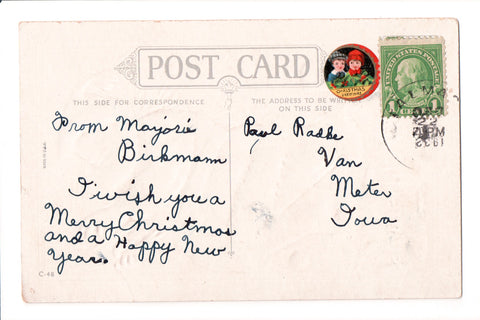 POST CARD
THIS SIDE FOR CORRESPONDENCE
THE ADDRESS TO BE WRITTEN
ON THIS SIDE
From Marjorie
Birkmann
I wish you a
Merry Christmas
and a Happy New
Year.
Paul Radke
Van
Meter
Iowa
CHRISTMAS
UNITED STATES POSTAGE
1
1
PM
C-48